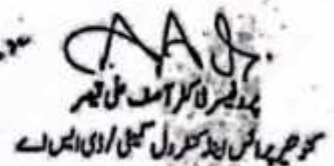 پروفیسر ڈاکٹر آصف علی قیصر
کنوینر پرائس اینڈ کنٹرول کمیٹی / ڈی ایس اے